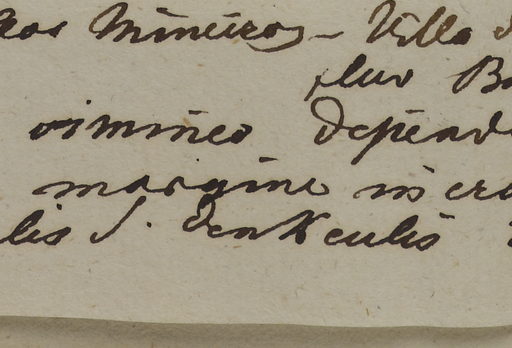 Mineiros - Villa
fluv
vimineo depend
margine incra
lis s. denticulis